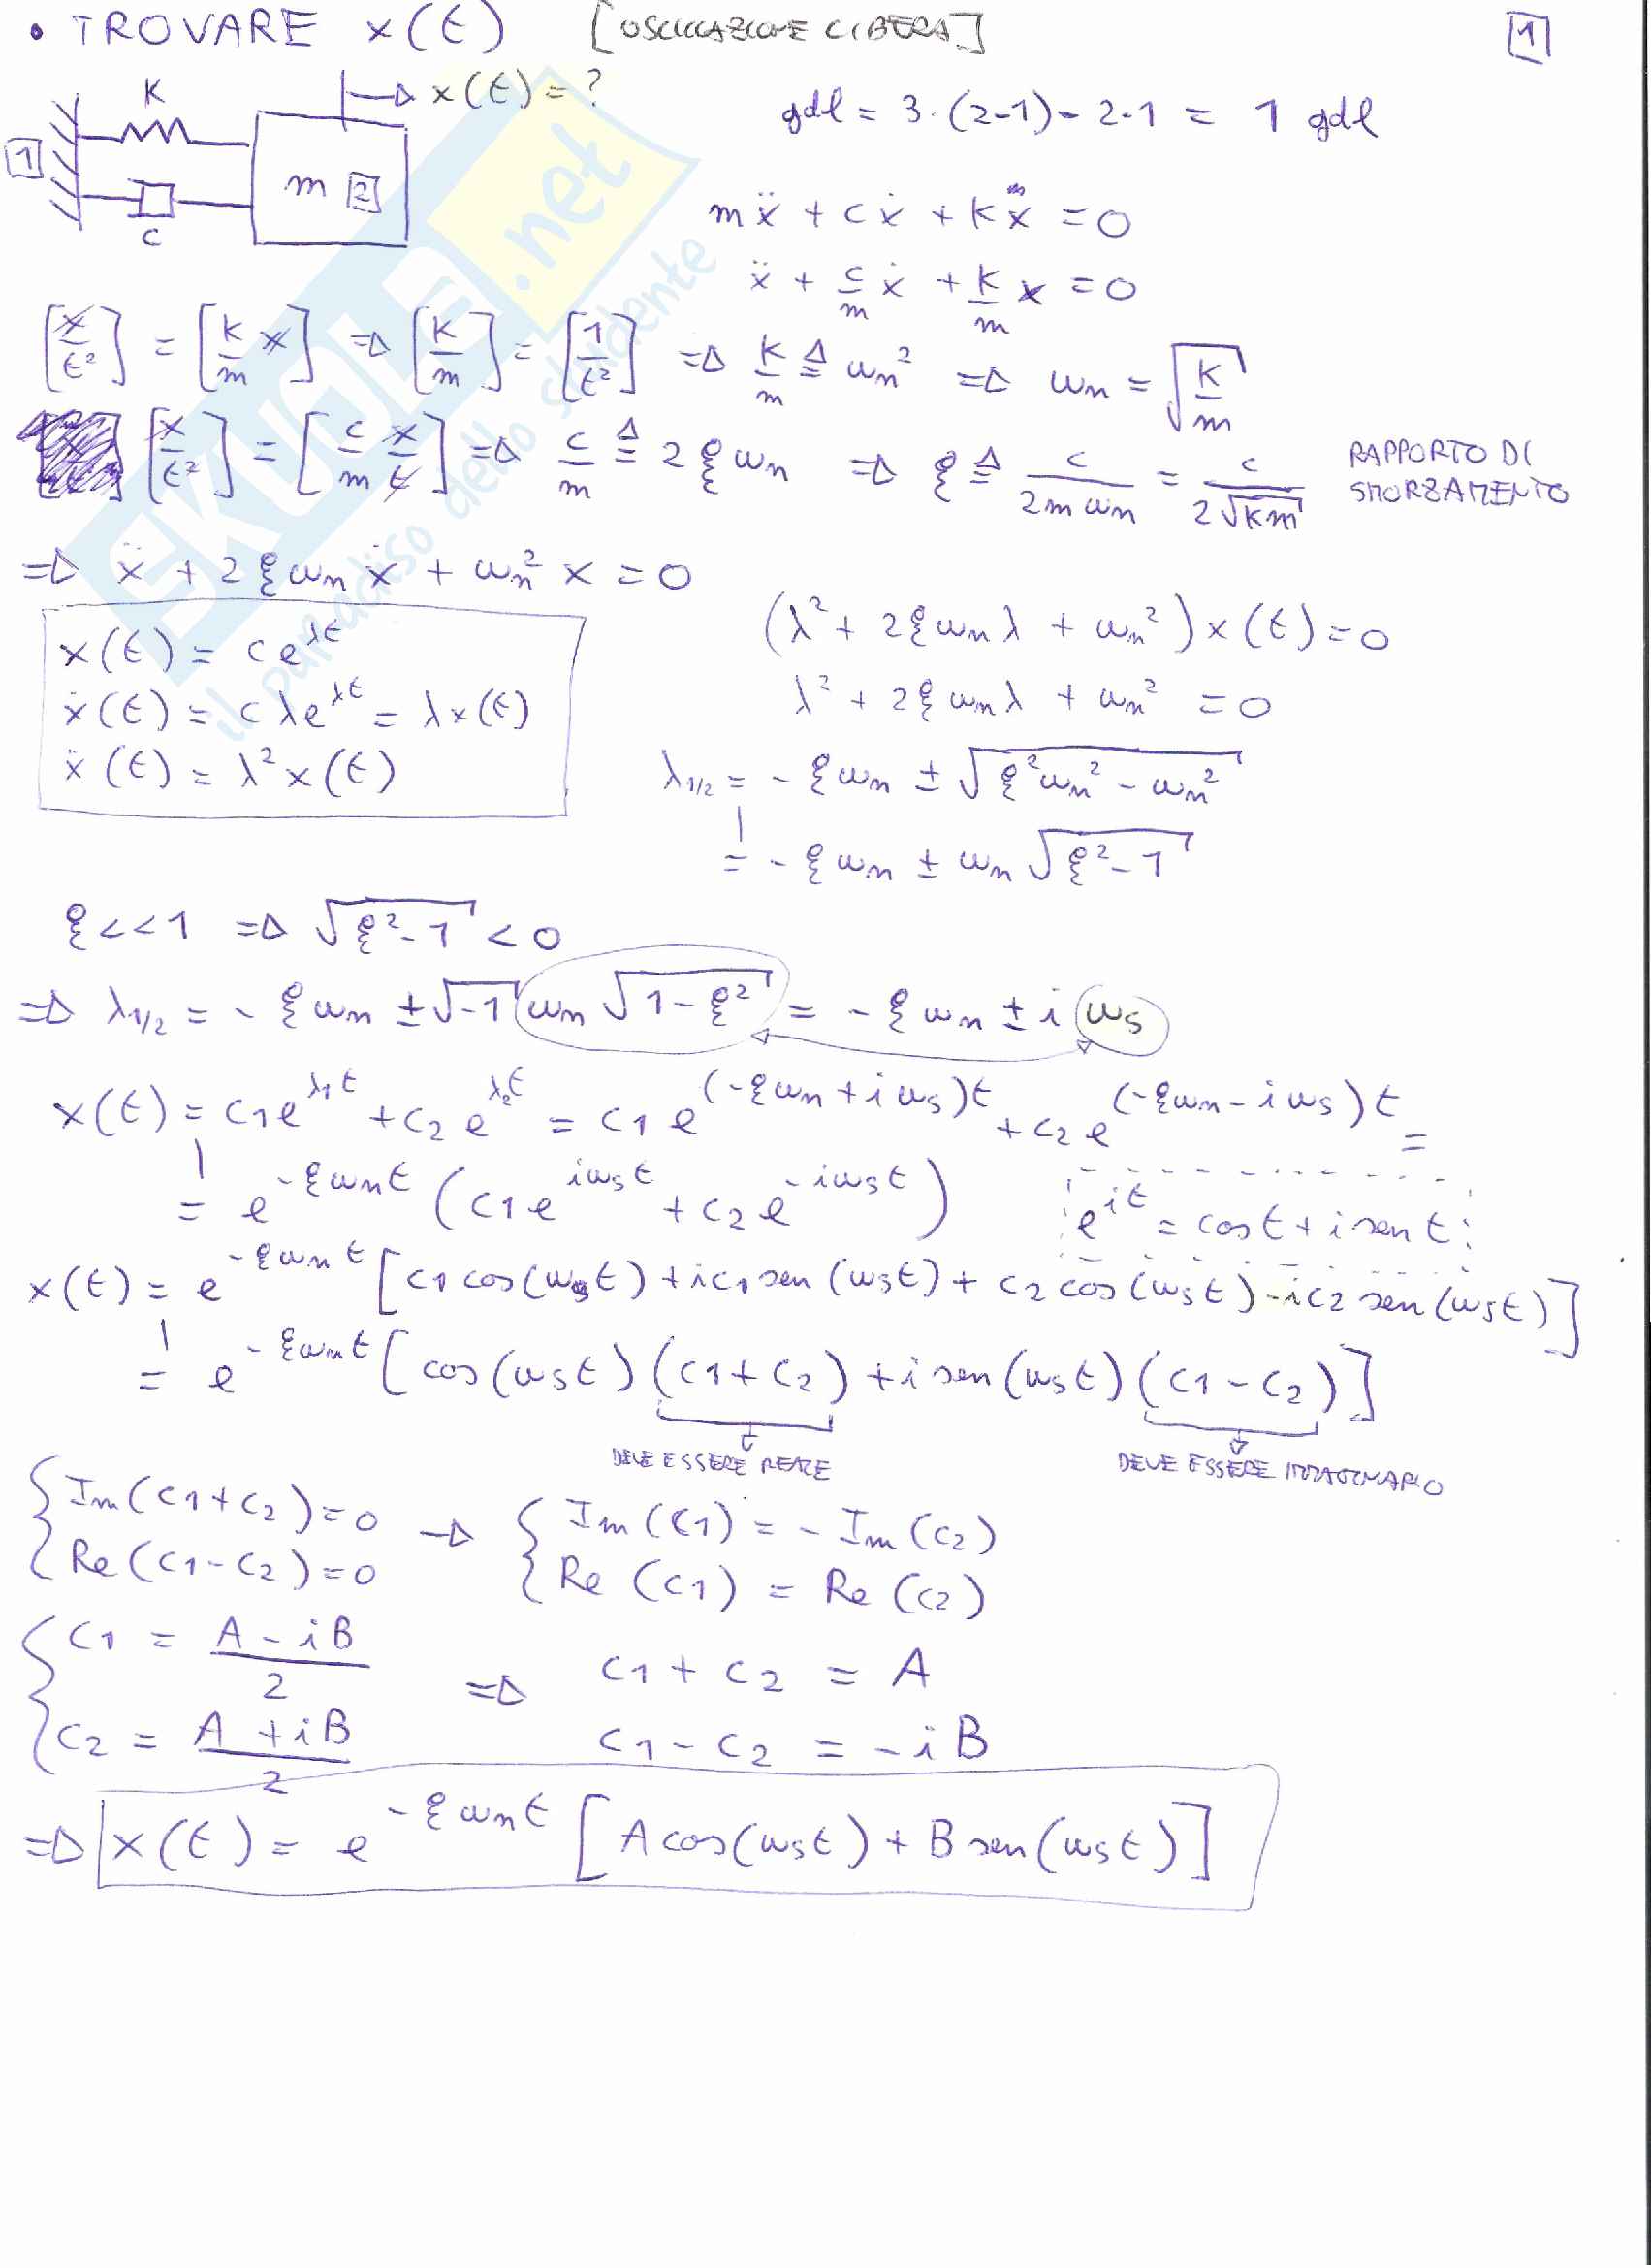 • TROVARE x(t) [OSCILLAZIONE LIBERA] 1
K x(t) = ? gdl = 3·(2-1) - 2·1 = 1 gdl
1 m 2
c
mẍ + cẋ + kx = 0
ẍ + c/m ẋ + k/m x = 0
[x/t²] = [k/m x] => [k/m] = [1/t²] => k/m ≜ ωn² => ωn = √(k/m)
[x/t²] = [c/m x/t] => c/m ≜ 2ξωn => ξ ≜ c/(2mωn) = c/(2√(km)) RAPPORTO DI SMORZAMENTO
=> ẍ + 2ξωnẋ + ωn²x = 0
x(t) = c e^(λt)
ẋ(t) = cλe^(λt) = λx(t)
ẍ(t) = λ²x(t)
(λ² + 2ξωnλ + ωn²)x(t) = 0
λ² + 2ξωnλ + ωn² = 0
λ1/2 = -ξωn ± √(ξ²ωn² - ωn²)
= -ξωn ± ωn√(ξ²-1)
ξ<<1 => √(ξ²-1) < 0
=> λ1/2 = -ξωn ± √-1 ωn√(1-ξ²) = -ξωn ± i ωs
x(t) = c1e^(λ1t) + c2e^(λ2t) = c1e^((-ξωn+iωs)t) + c2e^((-ξωn-iωs)t) =
= e^(-ξωnt) (c1e^(iωst) + c2e^(-iωst)) e^(it) = cos t + i sen t
x(t) = e^(-ξωnt) [c1 cos(ωst) + ic1 sen(ωst) + c2 cos(ωst) - ic2 sen(ωst)]
= e^(-ξωnt) [cos(ωst)(c1+c2) + i sen(ωst)(c1-c2)]
DEVE ESSERE REALE DEVE ESSERE IMMAGINARIO
{Im(c1+c2)=0 → {Im(c1) = -Im(c2)
Re(c1-c2)=0 Re(c1) = Re(c2)
{c1 = (A-iB)/2 => c1 + c2 = A
c2 = (A+iB)/2 c1 - c2 = -iB
=> x(t) = e^(-ξωnt) [A cos(ωst) + B sen(ωst)]
SKUOLA.net
il paradiso dello studente